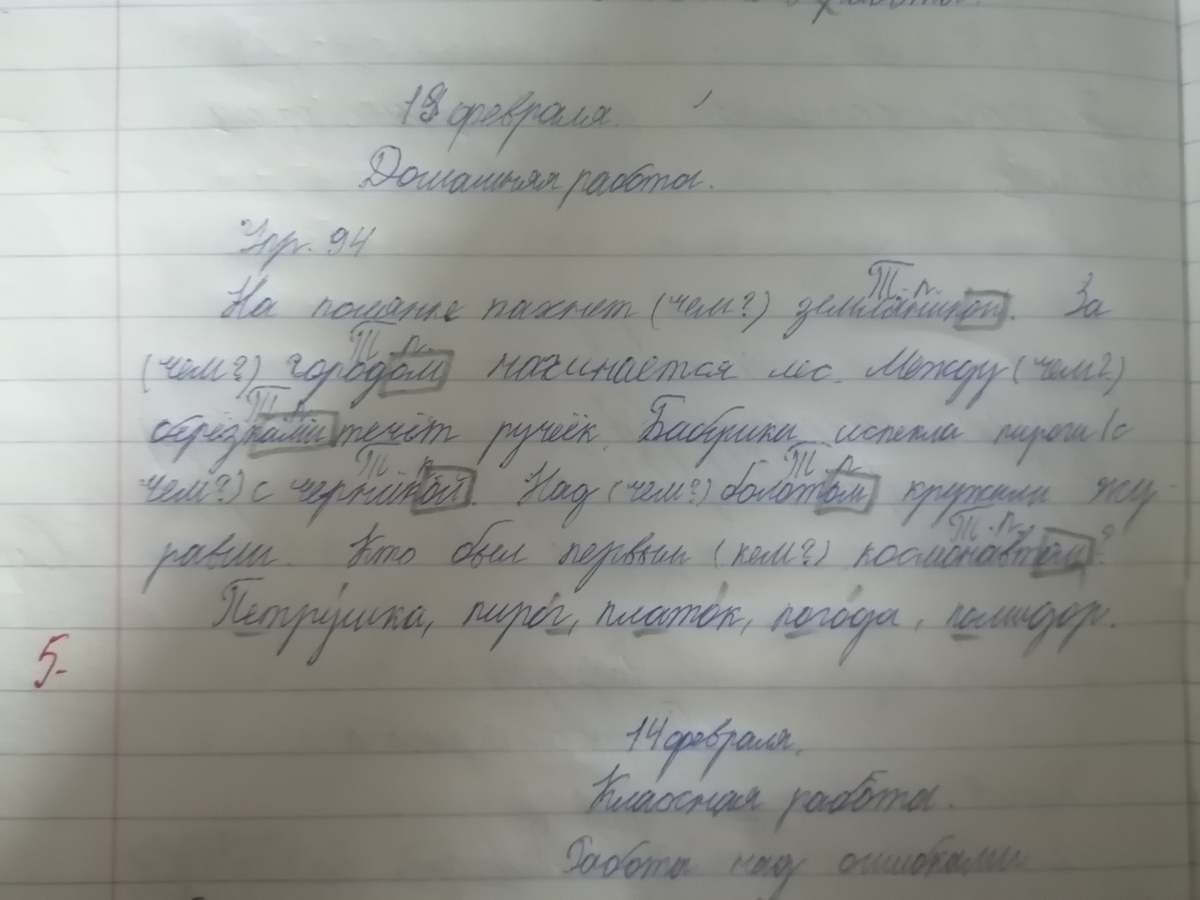 работа.
13 февраля.
Домашняя работа.
Упр. 94
На полянке пахнет (чем?) земляникой. За
Т. п.
(чем?) городом начинается лес. Между (чем?)
Т. п.
берёзками течёт ручеёк. Бабушка испекла пироги (с
Т. п.
чем?) с черникой. Над (чем?) болотом кружили жу-
Т. п. Т. п.
равли. Кто был первым (кем?) космонавтом?
Т. п.
Петрушка, пирог, платок, погода, помидор.
5-
14 февраля.
Классная работа.
Работа над ошибками